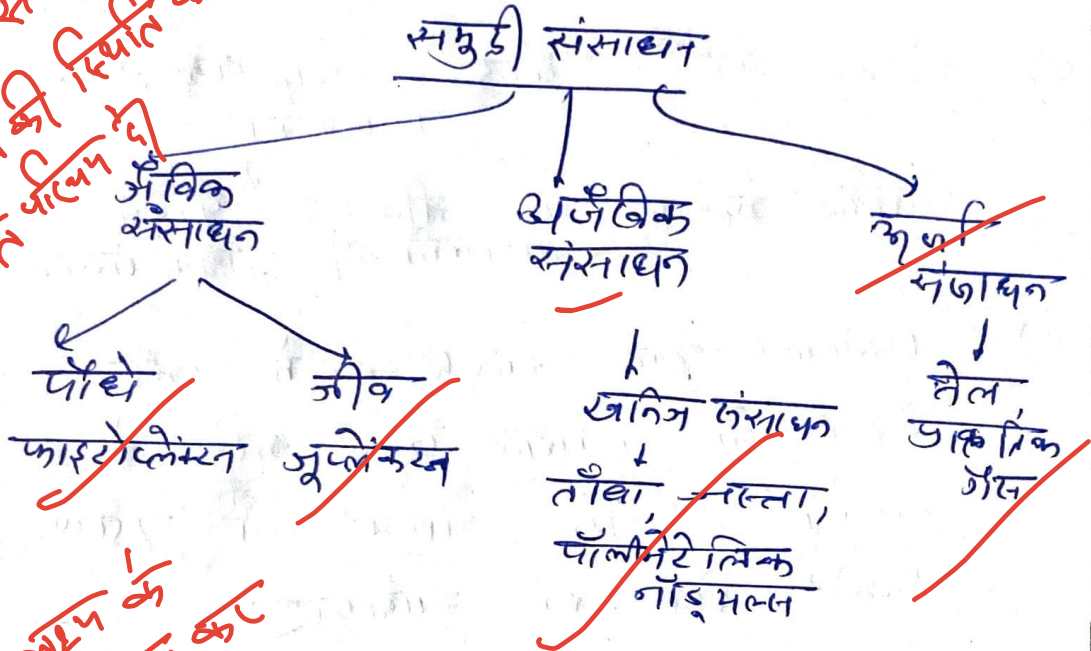 की स्थिति
समुद्री संसाधन
जैविक
संसाधन
अजैविक
संसाधन
ऊर्जा
संसाधन
पौधे
जीव
फाइटोप्लेंक्टन
जूप्लेंकटन
खनिज संसाधन
ताँबा, जस्ता,
पॉलीमेटेलिक
नॉड्यूल्स
तेल,
प्राकृतिक
गैस
के
कर